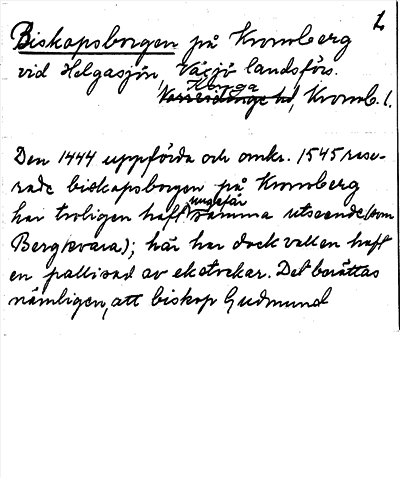 1.
Biskopsborgen på Kronoberg
vid Helgasjön, Växjö landsförs.
Kinga
Norrvidinge hd, Kronob. l.
Den 1444 uppförda och omkr. 1545 rase-
rade biskopsborgen på Kronoberg
har troligen haft ungefär samma utseende (som
Bergkvara); här har dock vallen haft
en pallisad av ekstockar. Det berättas
nämligen, att biskop Gudmund